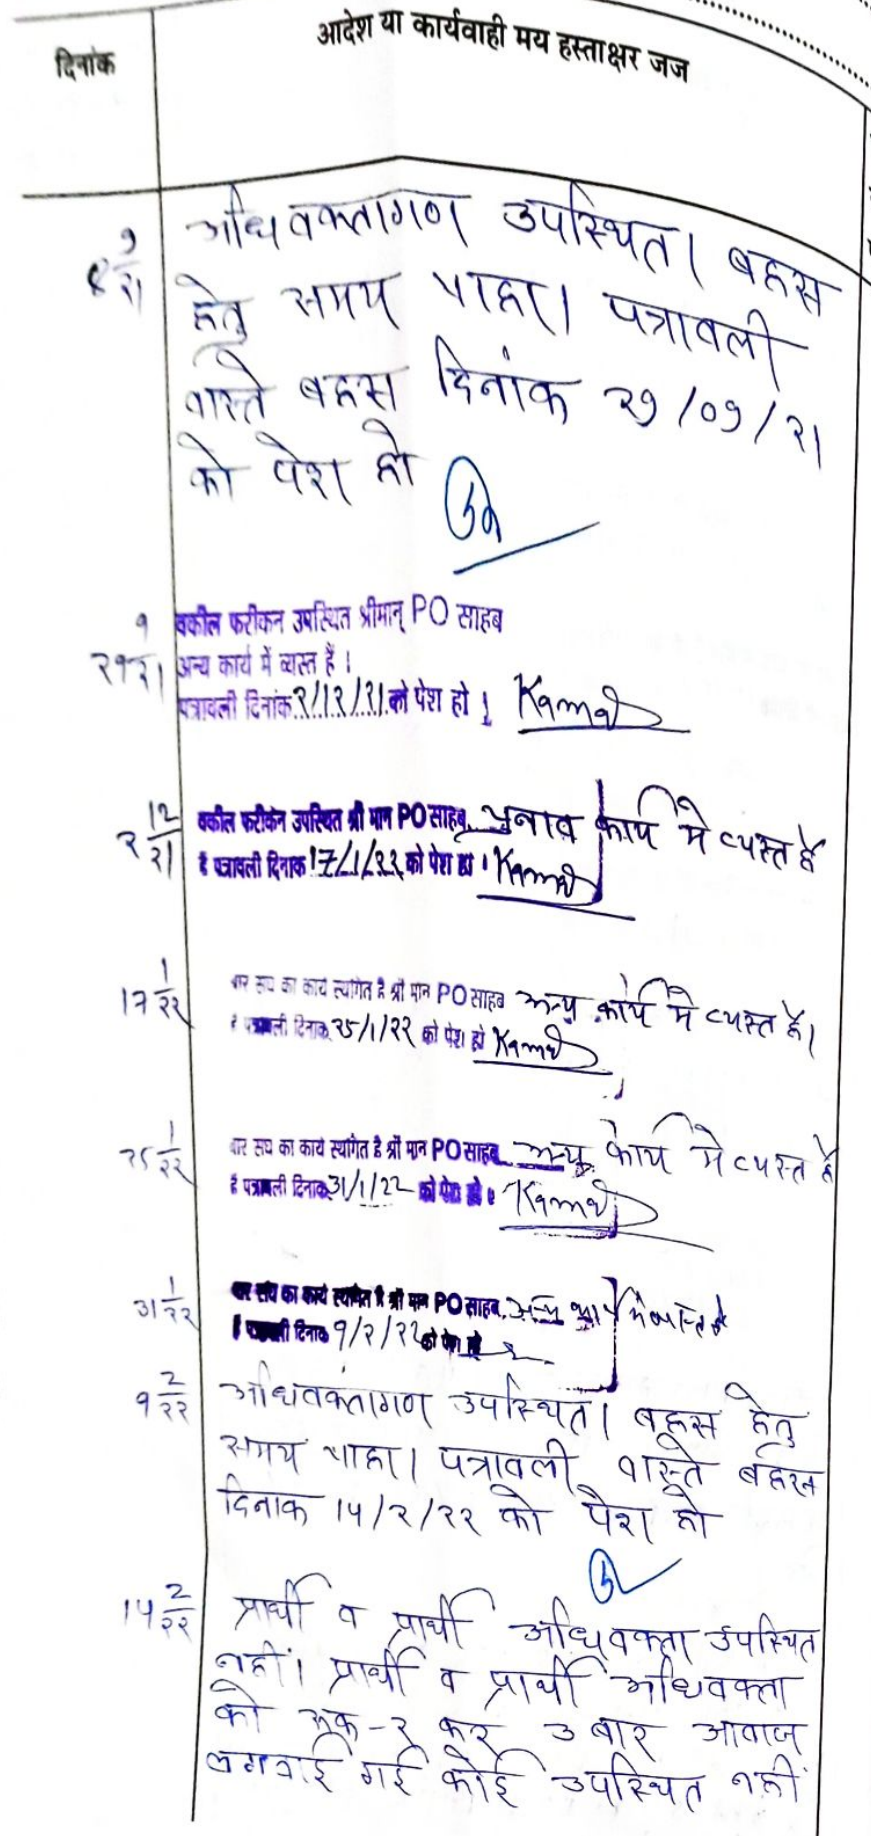 दिनांक
आदेश या कार्यवाही मय हस्ताक्षर जज
8 9/२१
अधिवक्तागण उपस्थित। बहस
हेतु समय चाहा। पत्रावली
वास्ते बहस दिनांक २9/09/२1
को पेश हो
२9 9/२1
वकील फरीकन उपस्थित श्रीमान् PO साहब
अन्य कार्य में व्यस्त हैं।
पत्रावली दिनांक २/1२/२1 को पेश हो। Kamal
२ 12/२1
वकील फरीकेन उपस्थित श्री मान PO साहब चुनाव कार्य मे व्यस्त है
है पत्रावली दिनाक 17/1/२२ को पेश हो। Kamal
17 1/२२
बार सघ का कार्य स्थगित है श्री मान PO साहब अन्य कार्य मे व्यस्त है।
है पत्रावली दिनाक २5/1/२२ को पेश हो Kamal
२5 1/२२
बार सघ का कार्य स्थगित है श्री मान PO साहब अन्य कार्य मे व्यस्त है
है पत्रावली दिनाक 31/1/22 को पेश हो। Kamal
31 1/२२
बार सघ का कार्य स्थगित है श्री मान PO साहब अन्य कार्य मे व्यस्त है
है पत्रावली दिनाक 9/२/२२ को पेश हो
9 2/२२
अधिवक्तागण उपस्थित। बहस हेतु
समय चाहा। पत्रावली वास्ते बहस
दिनाक 14/२/२२ को पेश हो
14 2/२२
प्रार्थी व प्रार्थी अधिवक्ता उपस्थित
नहीं। प्रार्थी व प्रार्थी अधिवक्ता
को रूक-२ कर 3 बार आवाज
लगवाई गई कोई उपस्थित नहीं